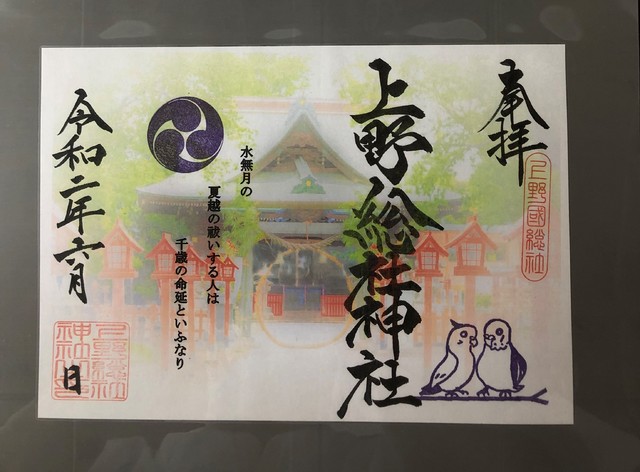 奉拝
上野國総社
上野総社神社
水無月の
夏越の祓いする人は
千歳の命延といふなり
令和二年六月
日